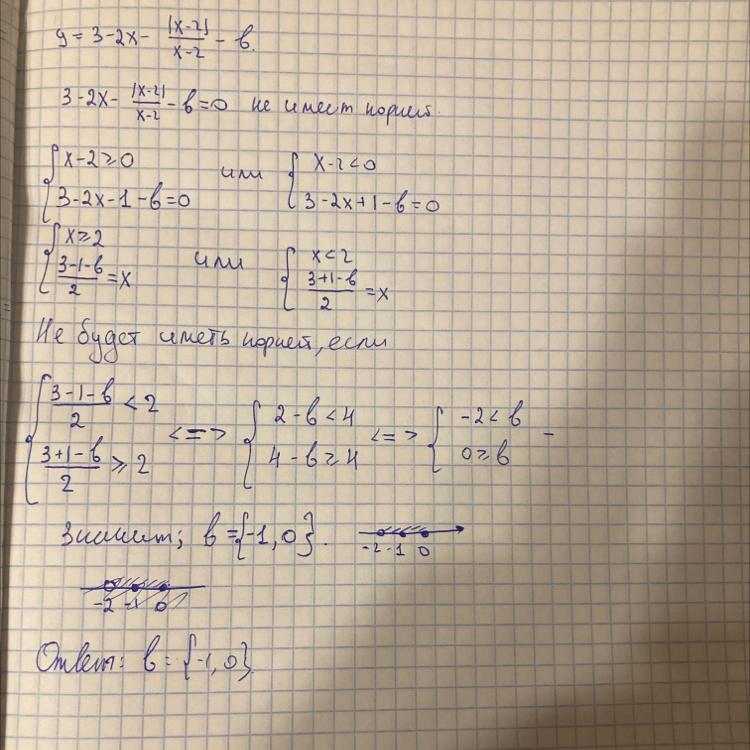 y = 3-2x- |x-2|/(x-2) - b.
3-2x- |x-2|/(x-2) - b = 0 не имеет корней.
{ x-2 ≥ 0 или { x-2 < 0
3-2x-1-b=0 3-2x+1-b=0
{ x ≥ 2 или { x < 2
(3-1-b)/2 = x (3+1-b)/2 = x
Не будет иметь корней, если
{ (3-1-b)/2 < 2 <=> { 2-b < 4 <=> { -2 < b -
(3+1-b)/2 ≥ 2 4-b ≥ 4 0 ≥ b
Значит; b = {-1, 0}. -2 -1 0
-2 -1 0
Ответ: b = {-1, 0}.